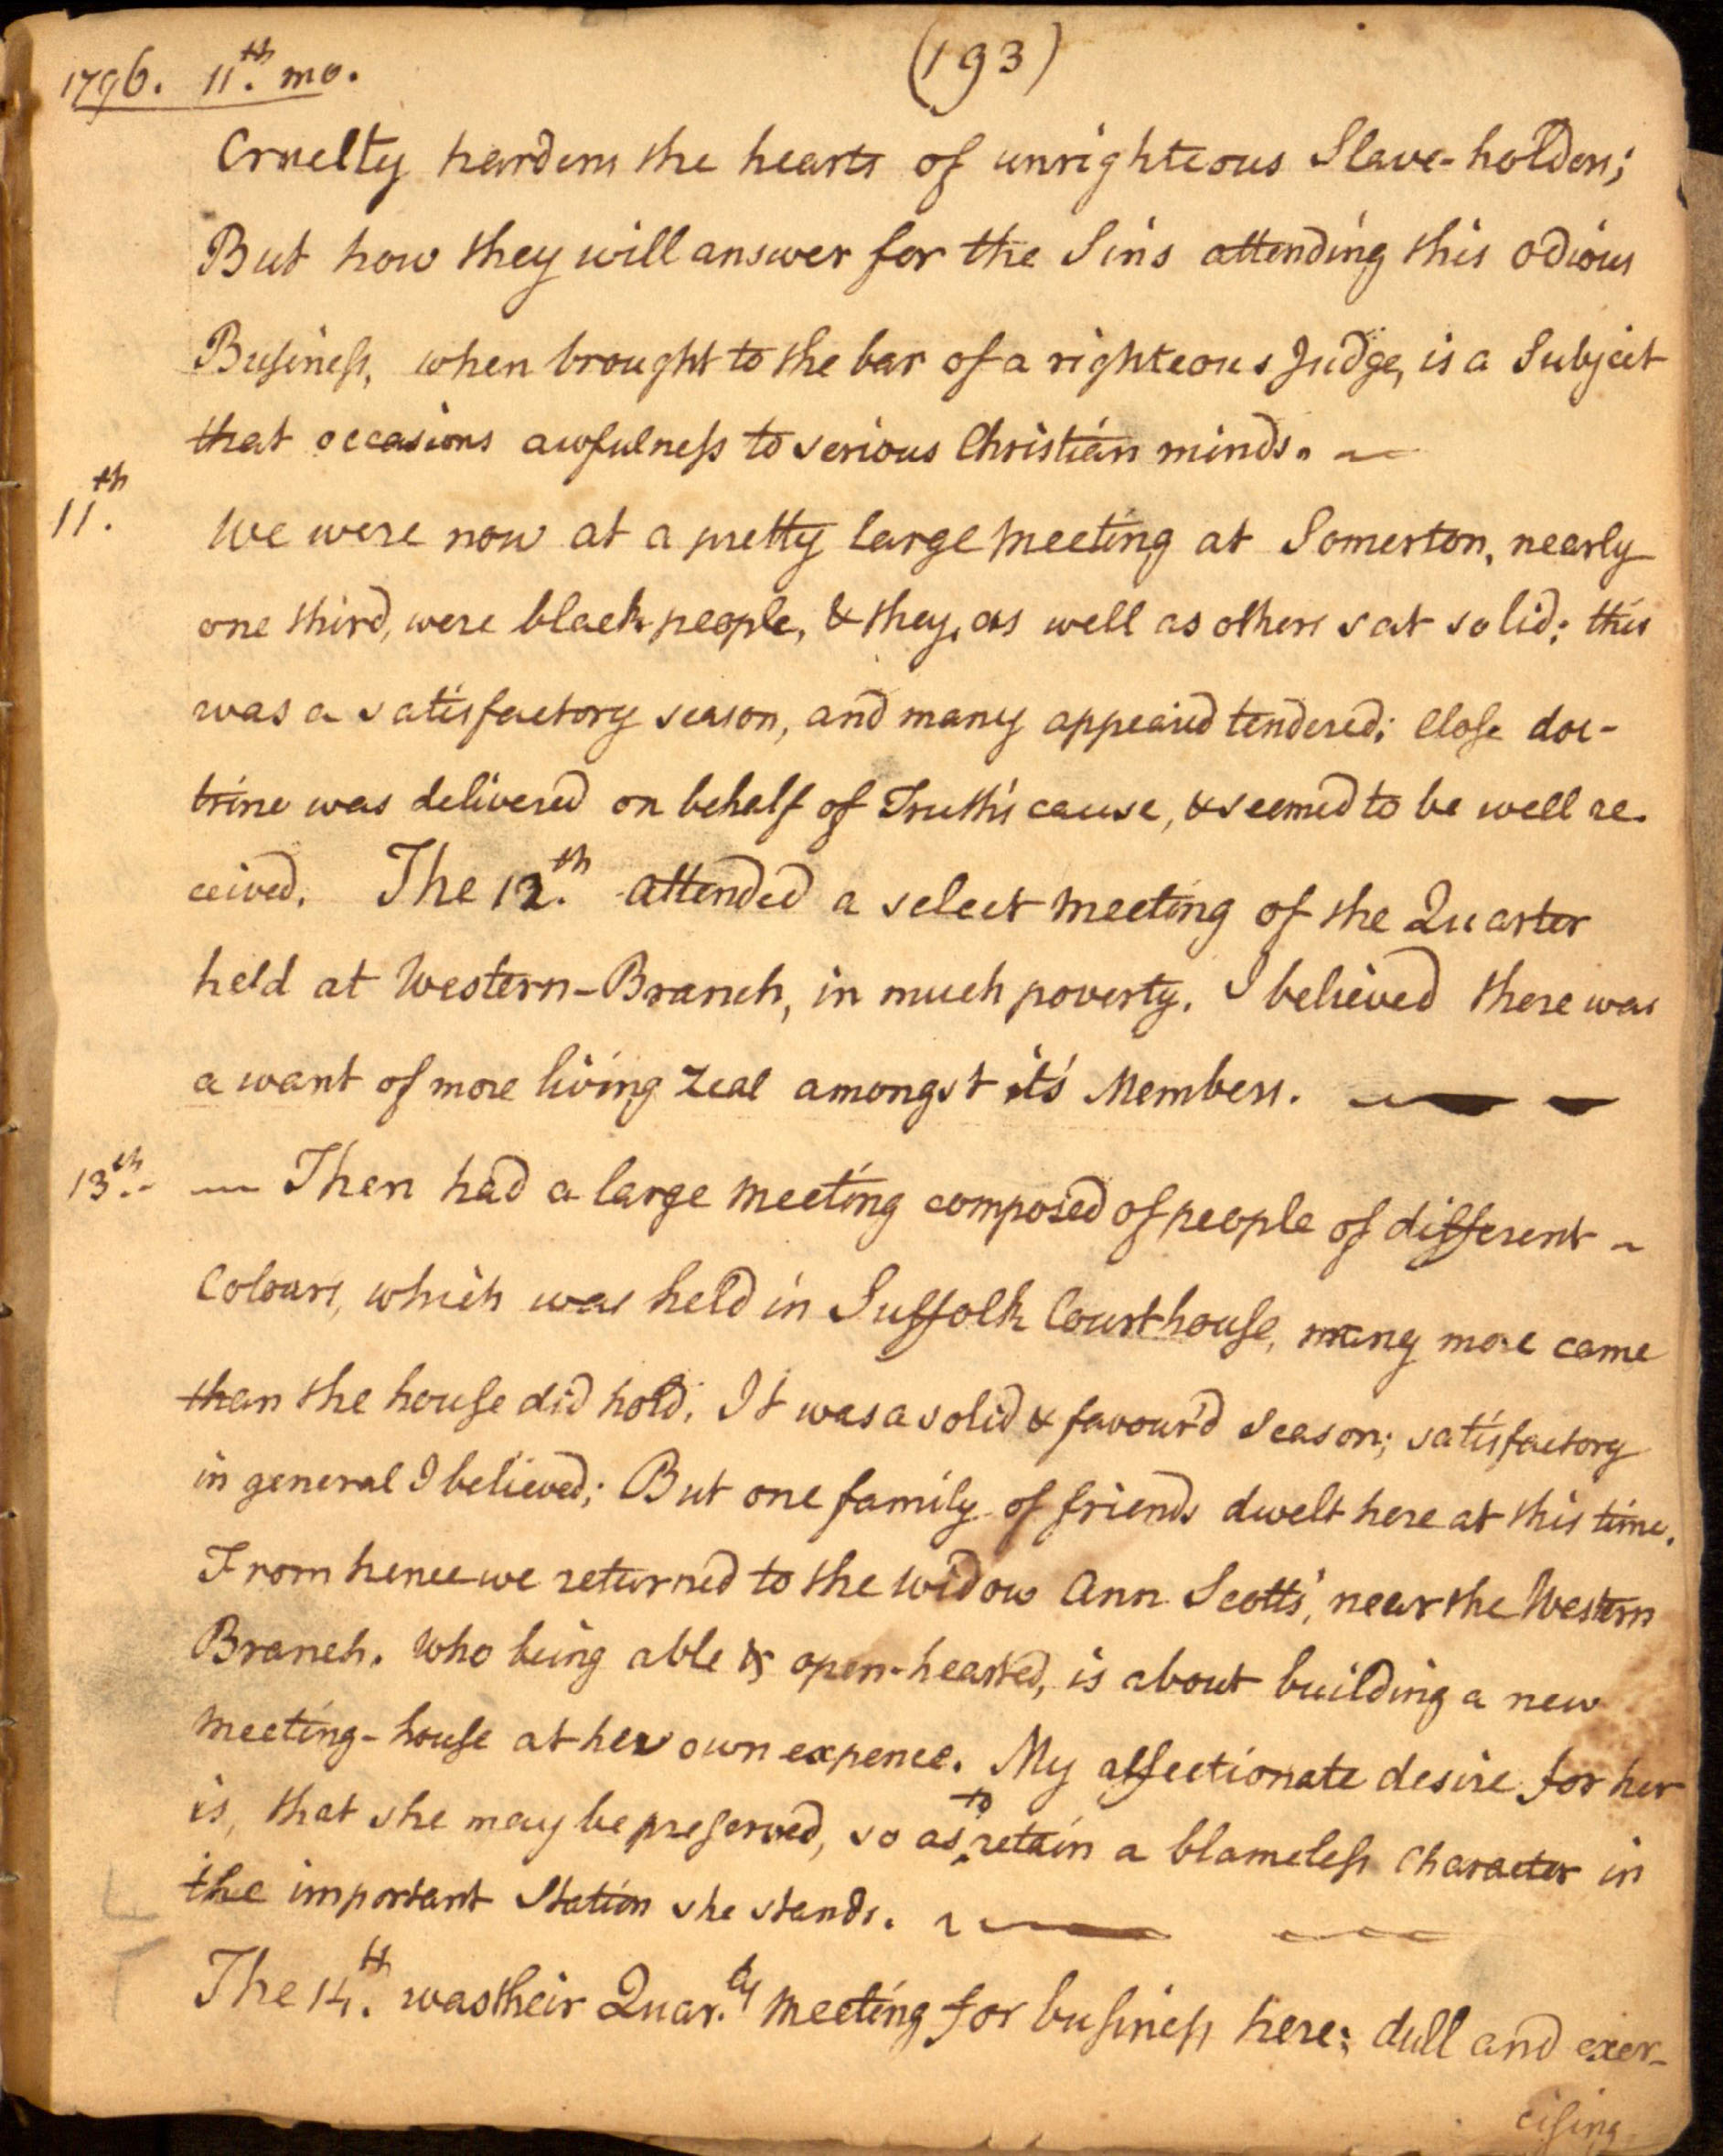 1796. 11.th mo.
(193)
Cruelty hardens the hearts of unrighteous Slave-holders;
But how they will answer for the Sins attending this odious
Business, when brought to the bar of a righteous Judge, is a Subject
that occasions awfulness to serious Christian minds. ~
11.th We were now at a pretty large meeting at Somerton, nearly
one third, were black people, & they, as well as others sat solid; this
was a satisfactory season, and many appeared tendered; Close doc-
trine was delivered on behalf of Truth's cause, & seemed to be well re-
ceived. The 12.th attended a select meeting of the Quarter
held at Western-Branch, in much poverty. I believed there was
a want of more living zeal amongst it's Members. ~ —
13.th - — Then had a large meeting composed of people of different ~
Colours, which was held in Suffolk Courthouse, many more came
than the house did hold. It was a solid & favour'd season; satisfactory
in general I believed; But one family of friends dwelt here at this time.
From hence we returned to the widow Ann Scotts', near the Western
Branch. Who being able & open-hearted, is about building a new
meeting-house at her own expence. My affectionate desire for her
is, that she may be preserved, so as to retain a blameless Character in
the important Station she stands. ~ — ~
The 14.th was their Quar.ly meeting for business here; dull and exer-
cising